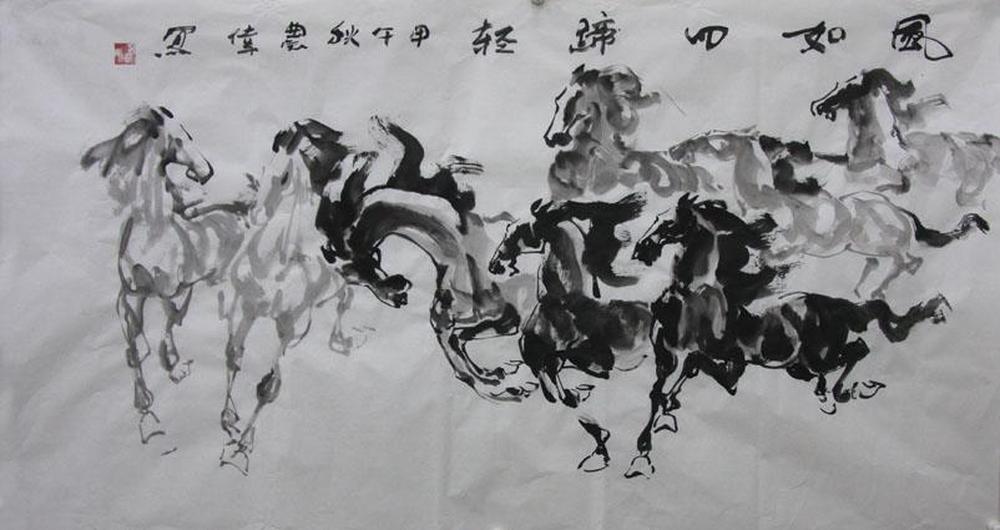 風如四蹄轻甲午秋農偉寫